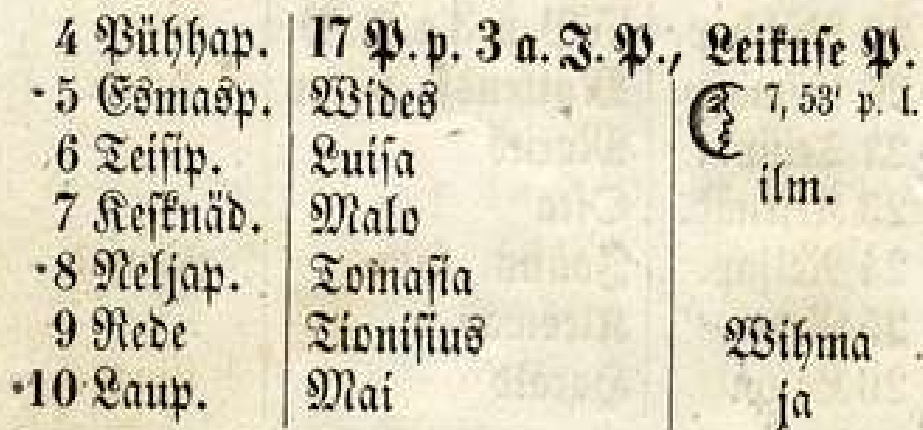 4 Pühhap. 17 P. p. 3 a. J. P., Leikuse P.
5 Esmasp. Wides 7, 53' p. l.
6 Teisip. Luisa
7 Kesknäd. Malo ilm.
8 Neljap. Tomasia
9 Rede Tionisius Wihma
10 Laup. Mai ja